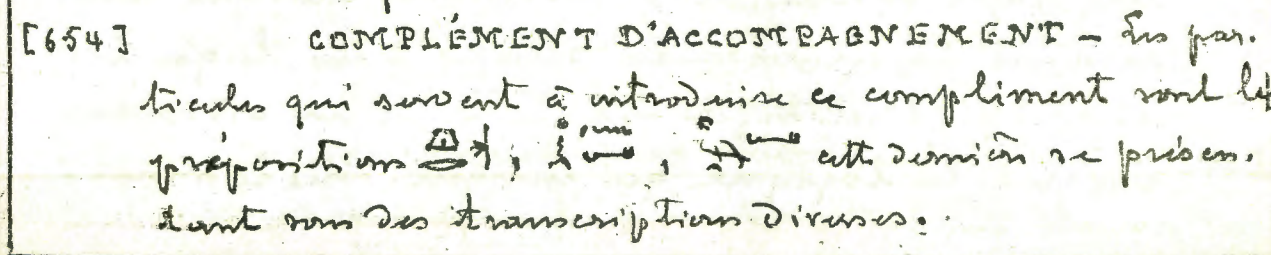 [654] COMPLÉMENT D'ACCOMPAGNEMENT – Les par-
ticules qui servent à introduire ce complément sont les
prépositions , , cette dernière se présen-
tant sous des transcriptions diverses.